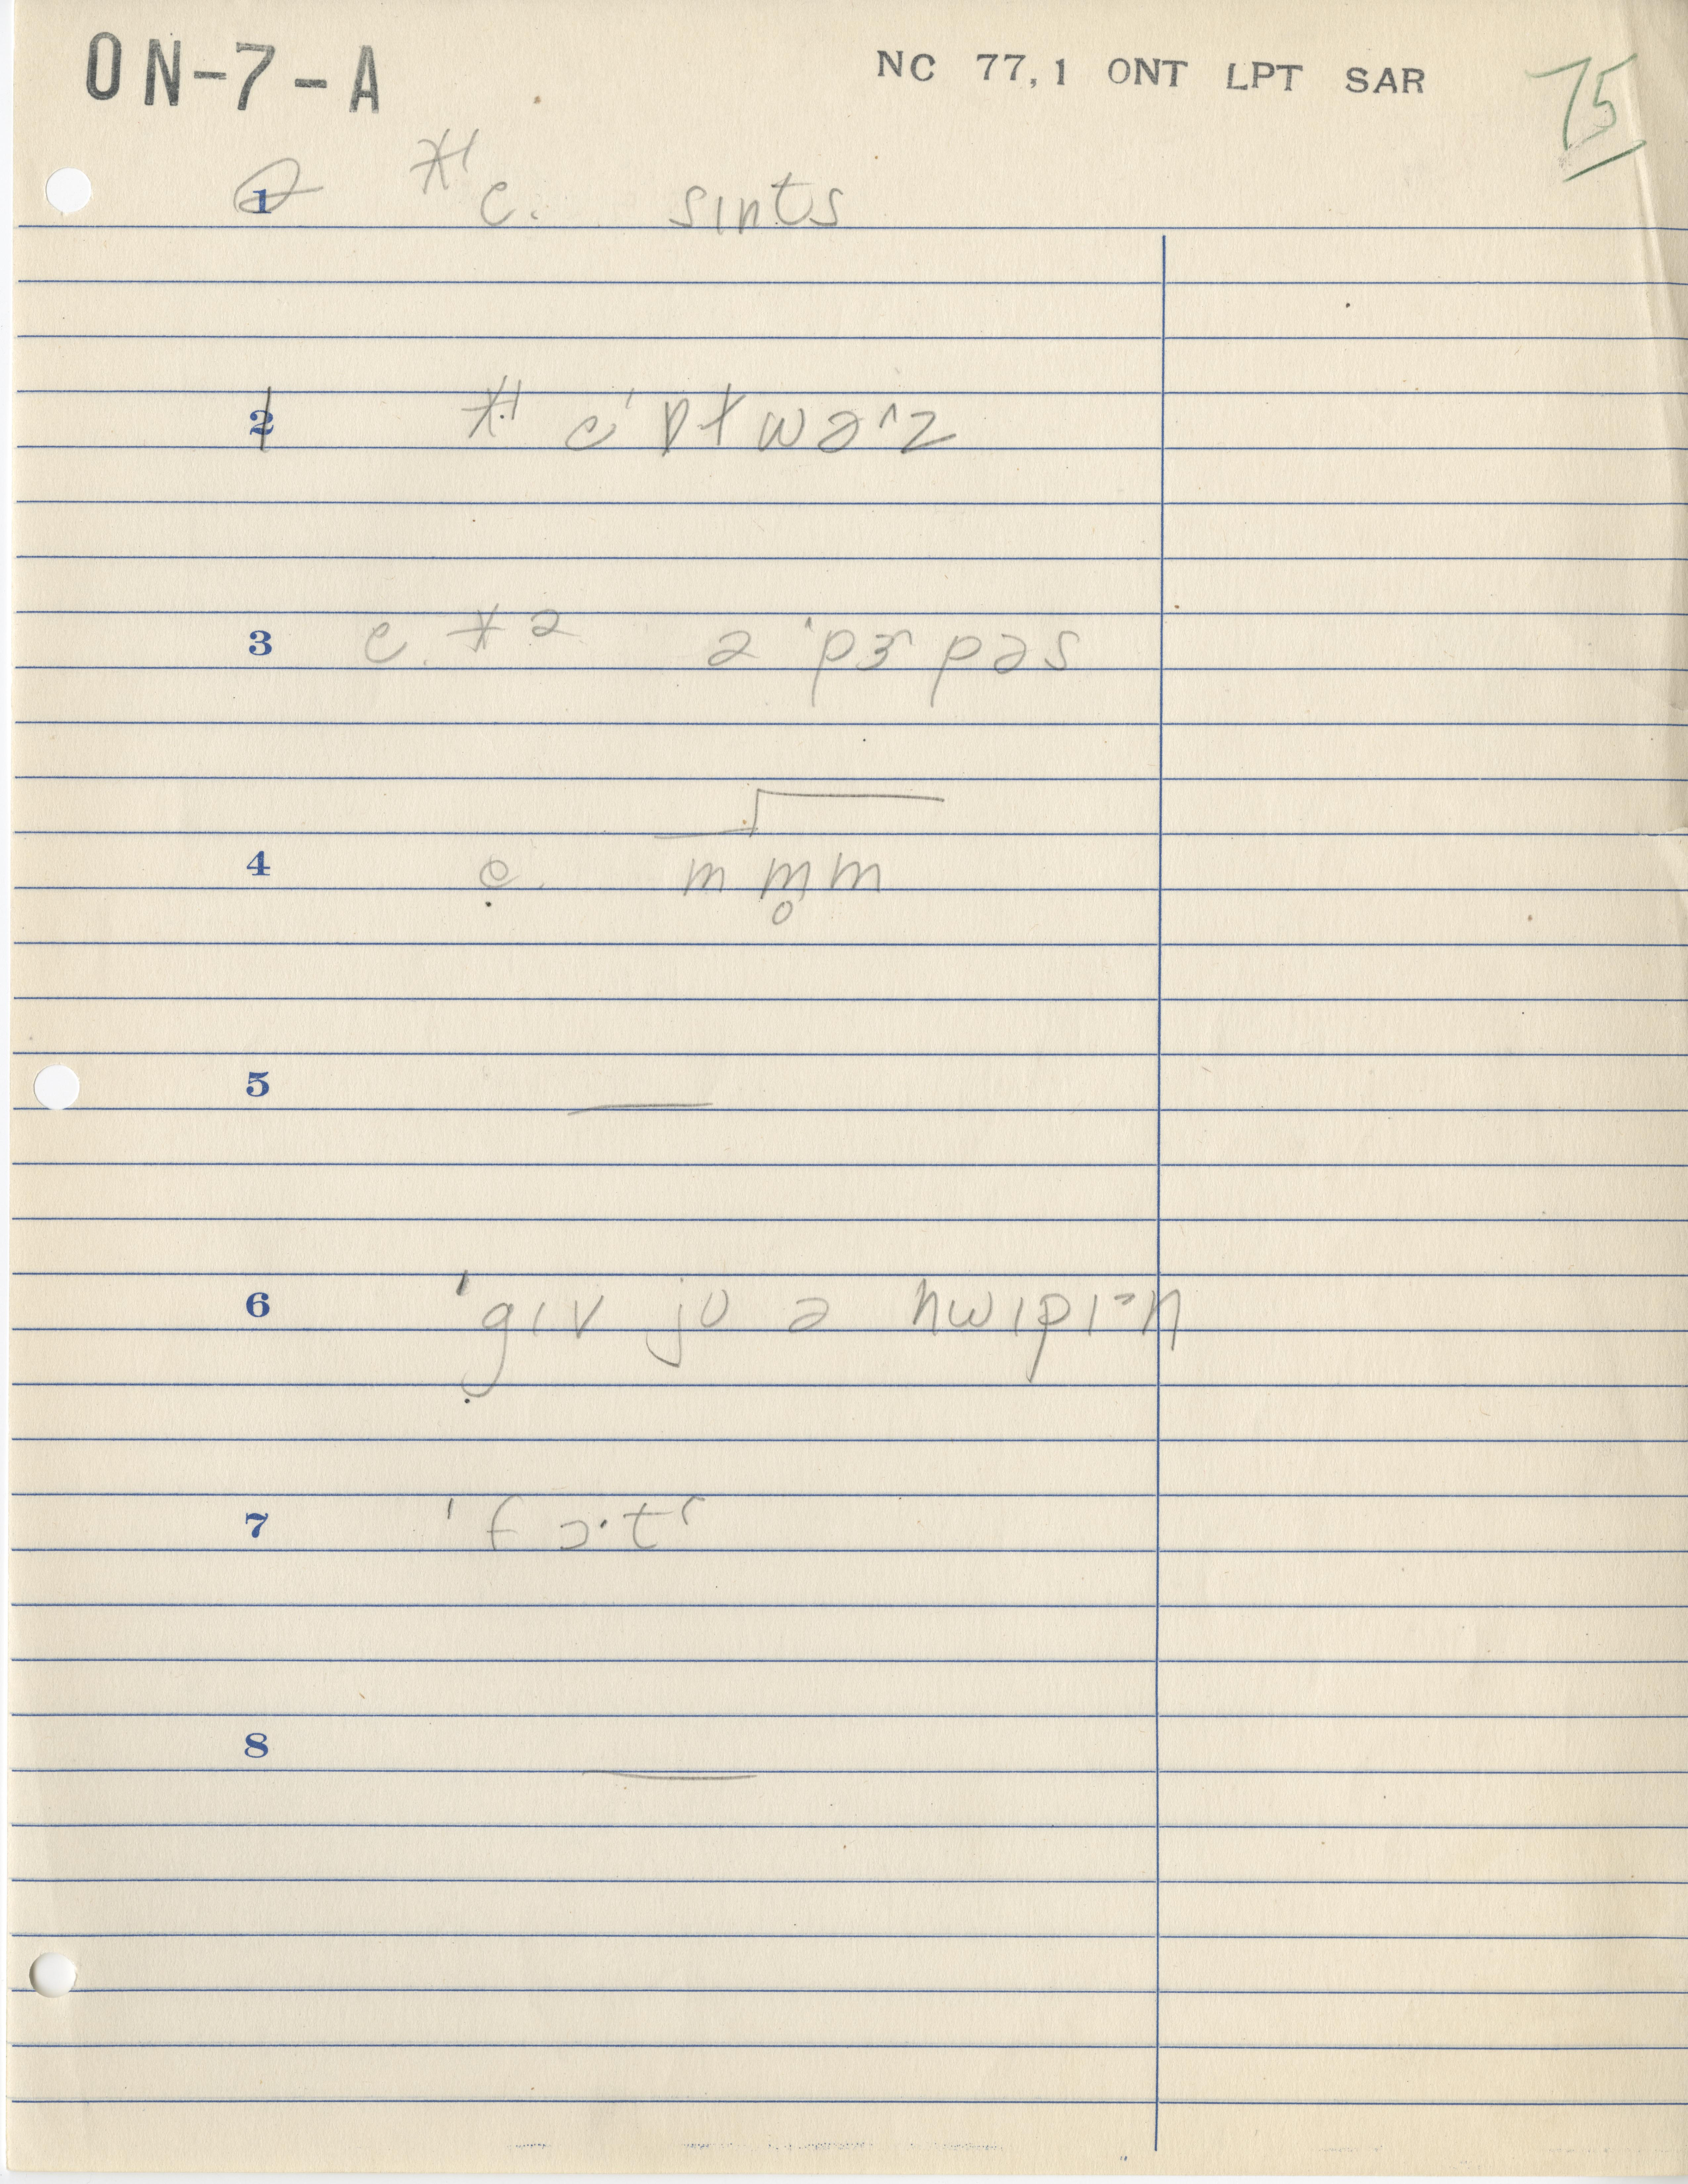 ON-7-A NC 77,1 ONT LPT SAR 75
1 *1 c. sɪnts
2 *1 c
3 c. *2 ə ˈpɝpəs
4 c. m m̥m
5 —
6 ˈgɪv jʊ ə
7 ˈfɔ·t
8 —